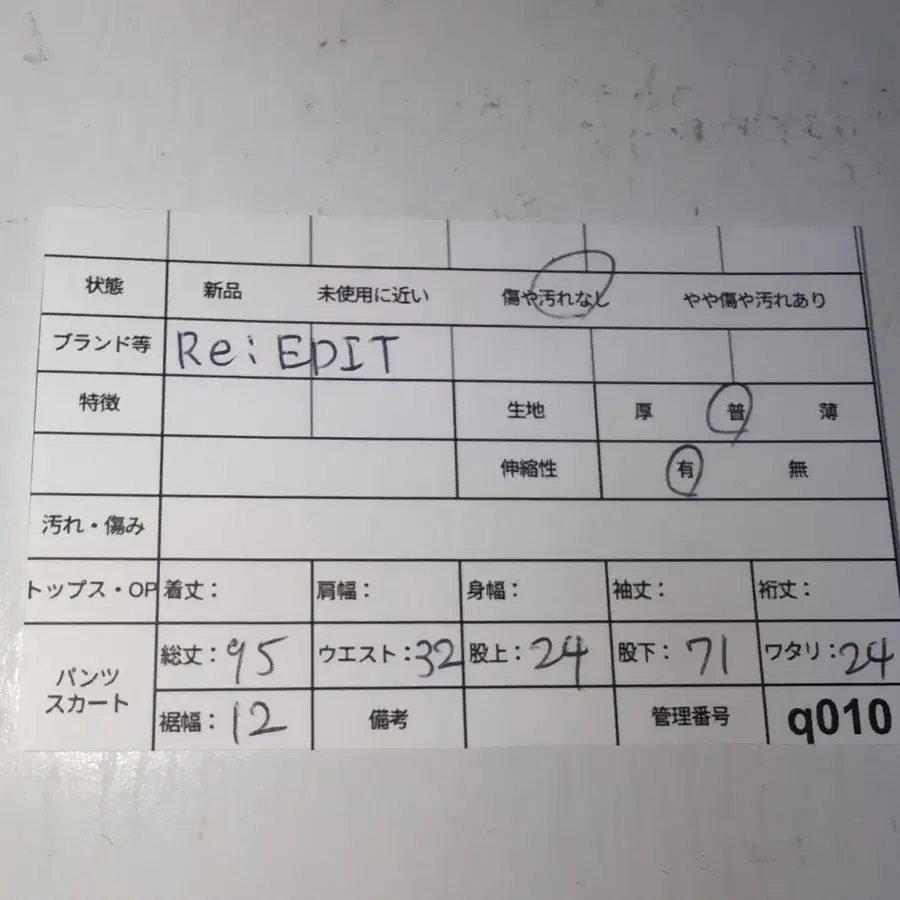 状態 新品 未使用に近い 傷や汚れなし やや傷や汚れあり
ブランド等 Re:EDIT
特徴 生地 厚 普 薄
伸縮性 有 無
汚れ・傷み
トップス・OP 着丈: 肩幅: 身幅: 袖丈: 裄丈:
パンツ スカート 総丈:95 ウエスト:32 股上:24 股下:71 ワタリ:24
裾幅:12 備考 管理番号 q010